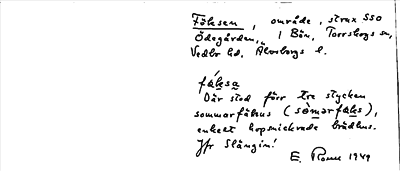 Föksen, område, strax SSO
Ödegården, i Bön, Torrskogs sn,
Vedbo hd, Älvsborgs l.
fǻksa
Där stod förr tre stycken
sommarfähus (sòmarfäks),
enkelt hopsnickrade brädhus.
Jfr Slängim!
E. 1949